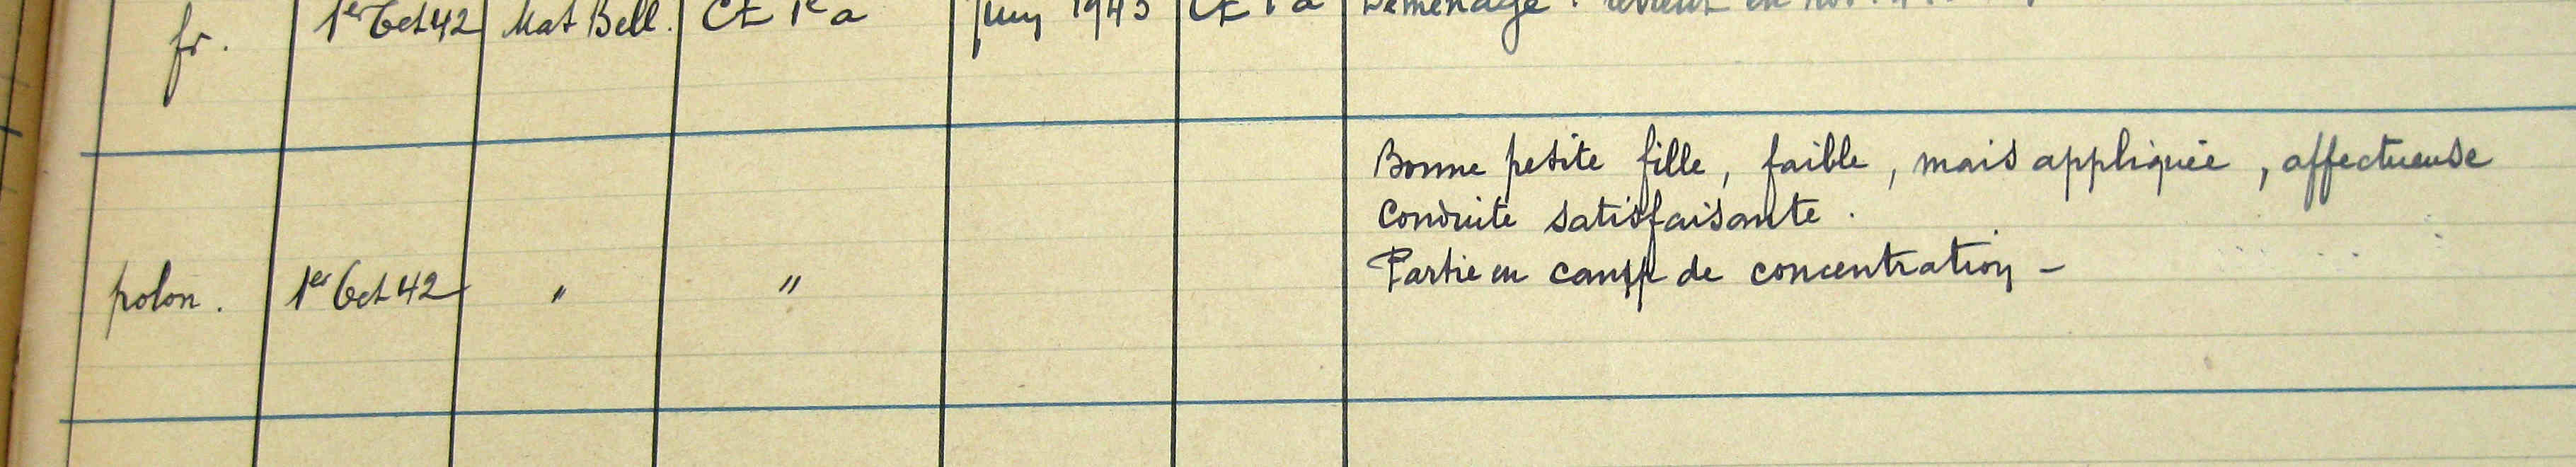 fr. 1er Oct 42 Mat Bell. CE 1e a Juin 1943 CE 1 a Déménagé. revient en nov.
Bonne petite fille, faible, mais appliquée, affectueuse
Conduite satisfaisante.
polon. 1er Oct 42 " " Partie en camp de concentration -